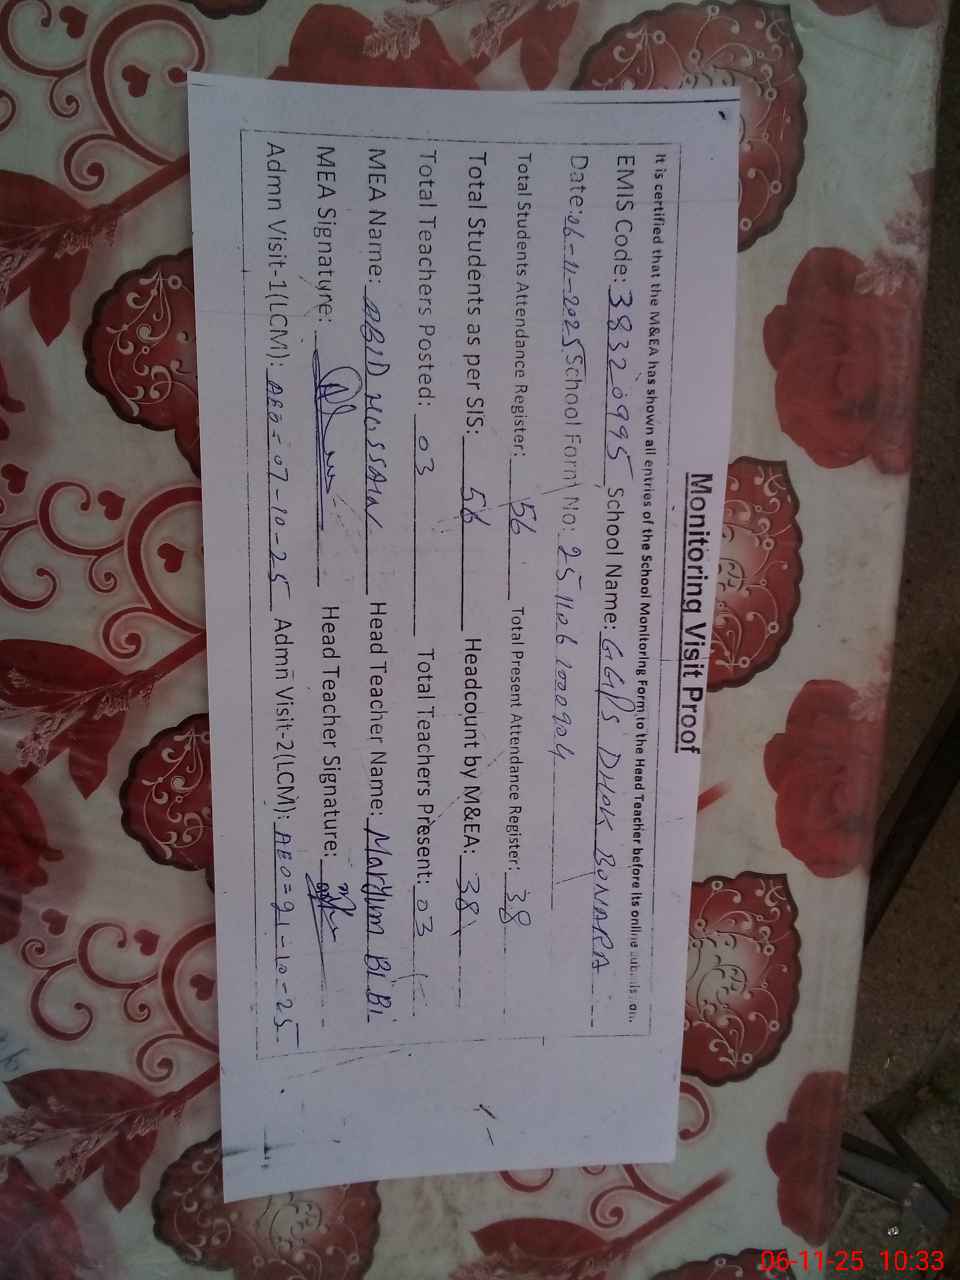 Monitoring Visit Proof
It is certified that the M&EA has shown all entries of the School Monitoring Form to the Head Teacher before its online submission.
EMIS Code: 38320995 School Name: GGPS DHOK BONARA
Date: 06-11-2025 School Form No: 25110610000904
Total Students Attendance Register: 56 Total Present Attendance Register: 38
Total Students as per SIS: 56 Headcount by M&EA: 38
Total Teachers Posted: 03 Total Teachers Present: 03
MEA Name: ABID HUSSAIN Head Teacher Name: Maryum BiBi
MEA Signature: Head Teacher Signature:
Admn Visit-1(LCM): AEO=07-10-25 Admn Visit-2(LCM): AEO=21-10-25
06-11-25 10:33